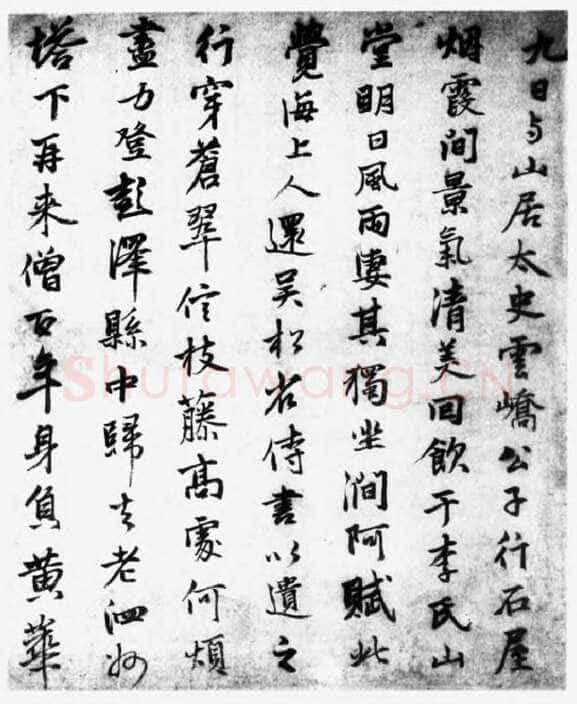 九日与山居太史雲嶠公子行石屋
烟霞间景氣清美回飲于李氏山
堂明日風雨凄其獨坐澗阿賦此
覺海上人還吴松省侍書以遺之
行穿蒼翠信枝藤高處何煩
盡力登彭澤縣中歸去老泗州
塔下再来僧百年身負黄華
Shufawang.CN